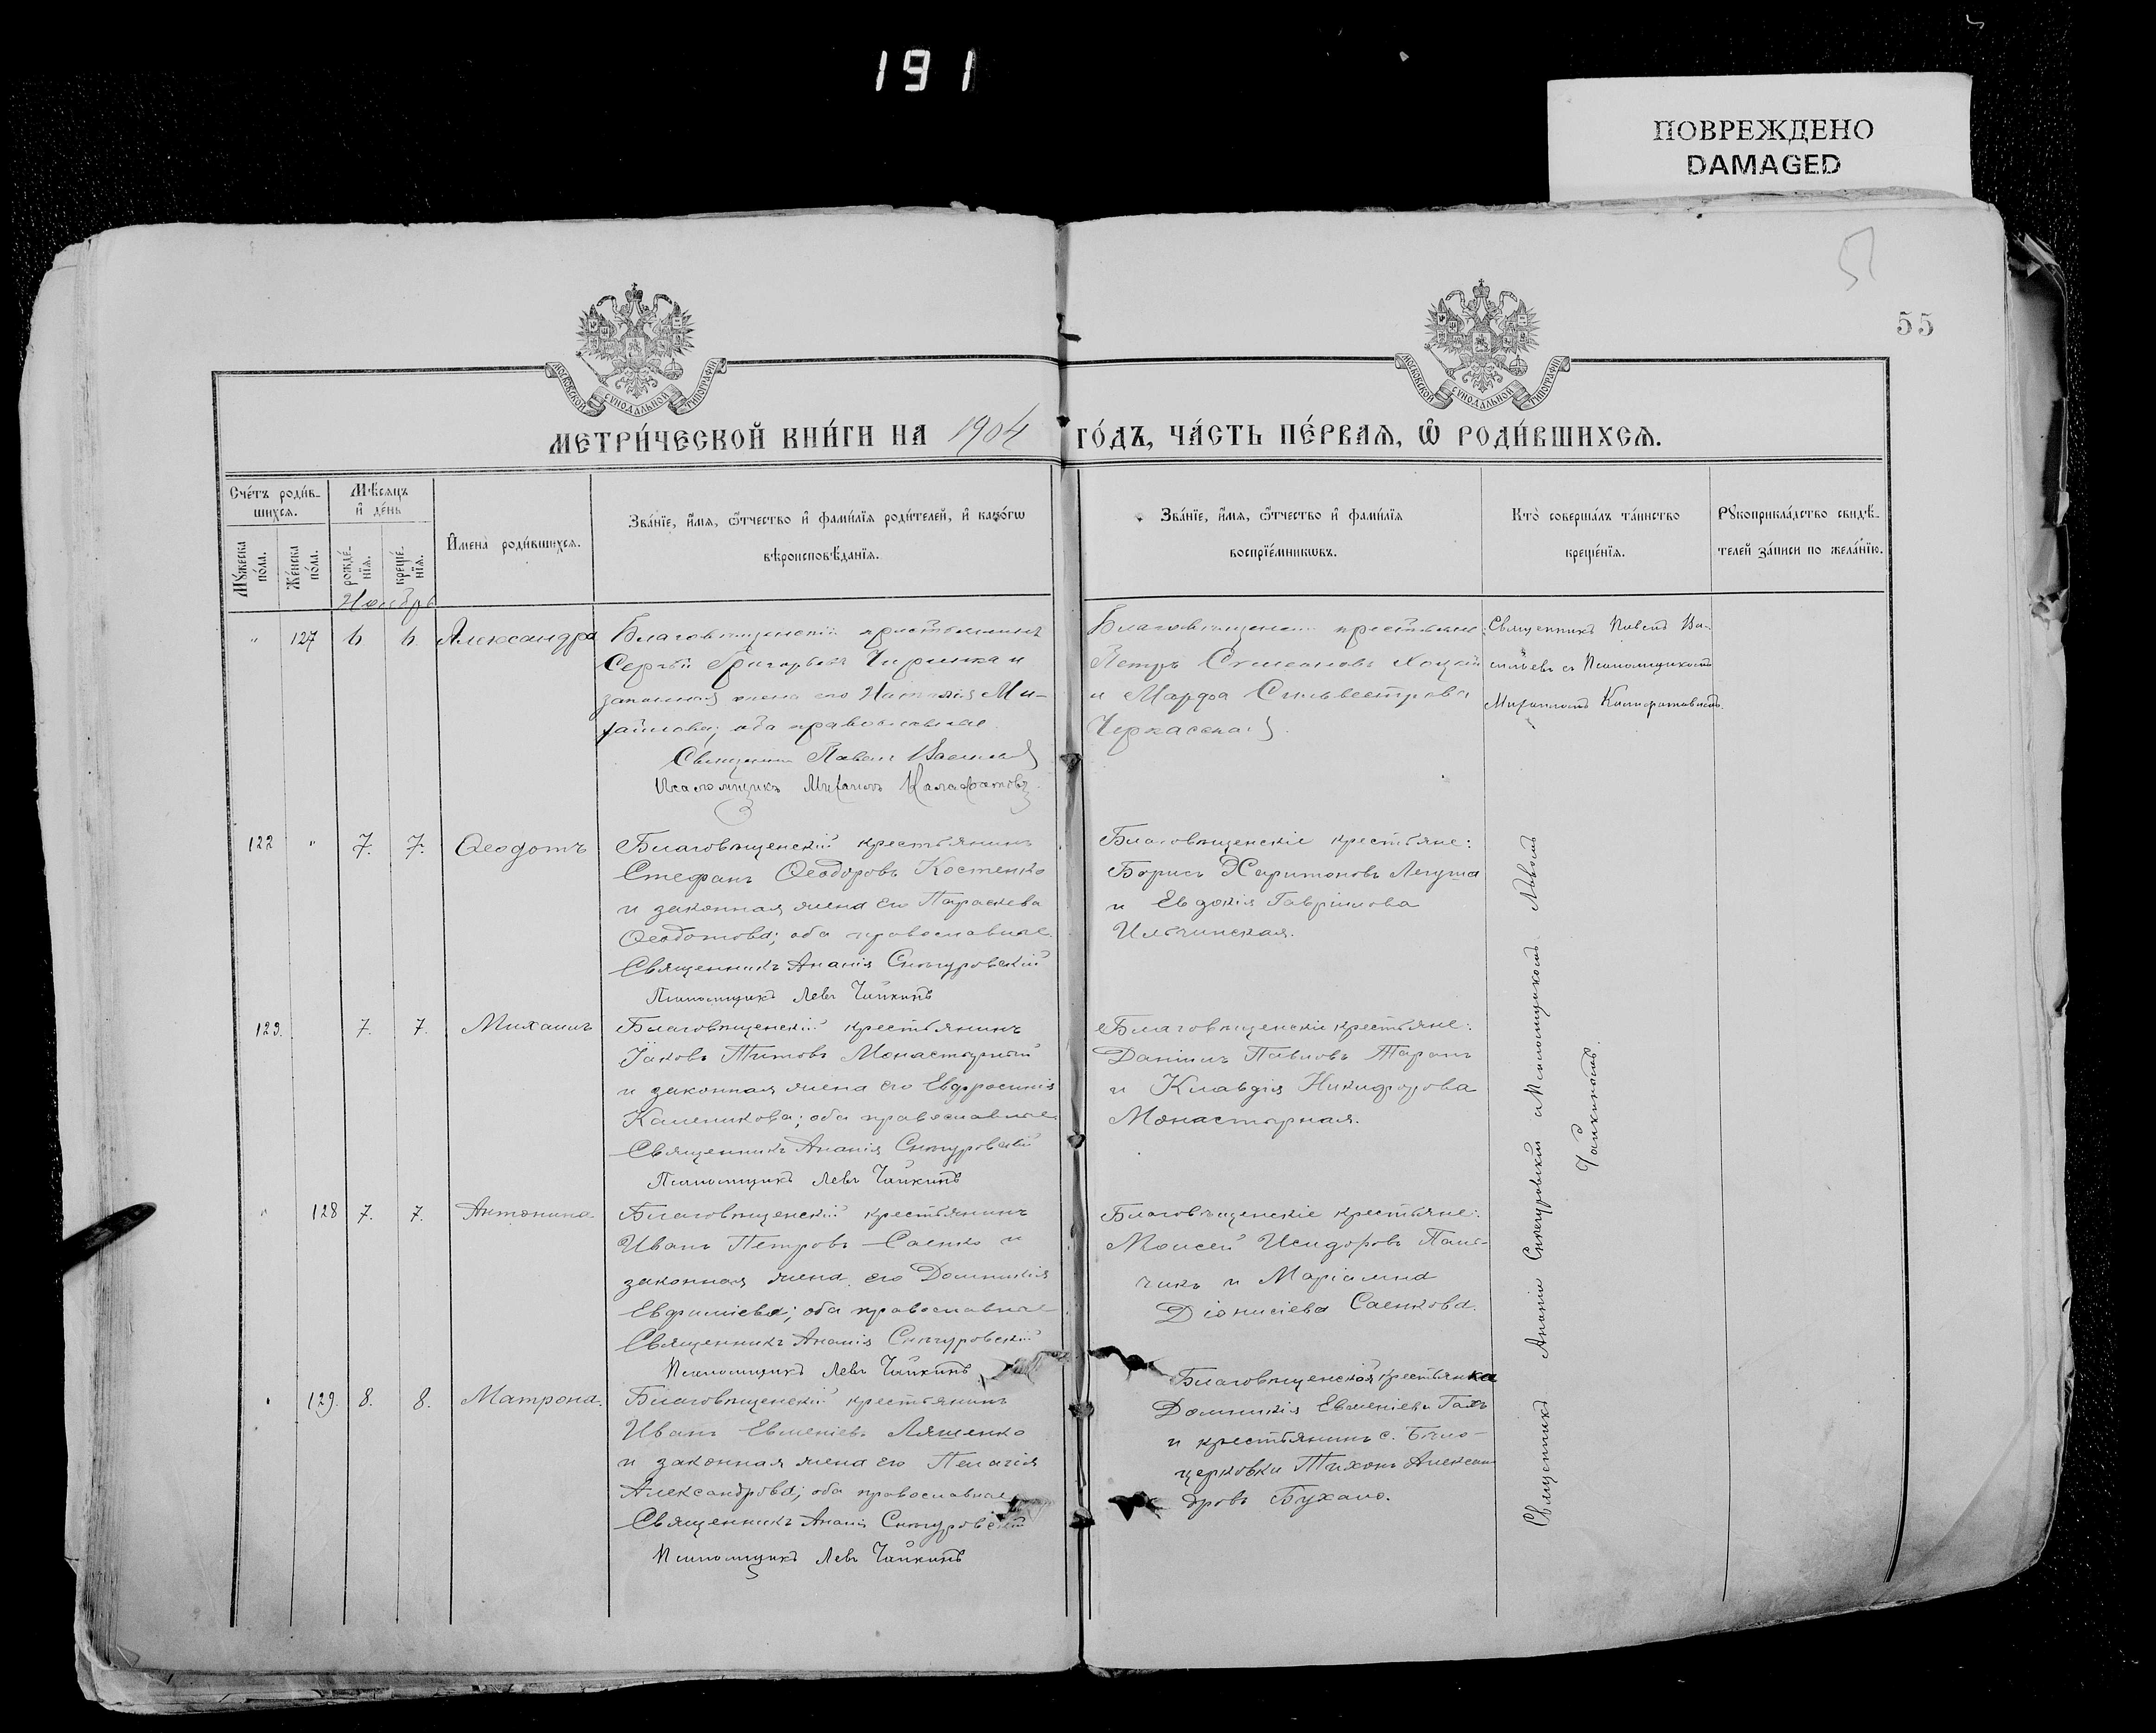 191
ПОВРЕЖДЕНО
DAMAGED
55
МОСКОВСКОЙ СѴНОДАЛЬНОЙ ТИПОГРАФІИ
МОСКОВСКОЙ СѴНОДАЛЬНОЙ ТИПОГРАФІИ
МЕТРИ́ЧЕСКОЙ КНИ́ГИ НА 1904 ГО́ДЪ, ЧА́СТЬ ПЕ́РВАѦ, Ѽ РОДИ́ВШИХСѦ.
Сче́тъ роди́в-
шихсѧ.
Мꙋжеска по́ла.
Же́нска по́ла.
Мѣ́сѧцъ
и҆ де́нь
рожде́-
нїѧ.
креще́-
нїѧ.
И҆мена̀ роди́вшихсѧ.
Зва́нїе, и҆́мѧ, ѻ҆́тчество и҆ фами́лїѧ роди́телей, и҆ како́гѡ
вѣроисповѣ́данїѧ.
Зва́нїе, и҆́мѧ, ѻ҆́тчество и҆ фами́лїѧ
воспрїе́мникѡвъ.
Кто̀ соверша́лъ та́инство
креще́нїѧ.
Рꙋкоприкла́дство свидѣ́-
телей за́писи по жела́нїю.
Ноябрь
" 127 6 6 Александра
Благовѣщенскій крестьянинъ
Сергѣй Григорьевъ и
законная жена его Наталія Ми-
хайлова; оба православные.
Священникъ Павелъ Васильевъ
Псаломщикъ Михаилъ Калафатовъ
Благовѣщенскіе крестьяне
Петръ Симеоновъ
и Марфа Сильвестрова
Черкасская
Священникъ Павелъ Ва-
сильевъ съ Псаломщикомъ
Михаиломъ Калафатовымъ.
122 " 7. 7. Ѳеодотъ
Благовѣщенскій крестьянинъ
Стефанъ Ѳеодоровъ Костенко
и законная жена его Параскева
Ѳеодотова; оба православные.
Священникъ Ананія Снѣгуровскій
Псаломщикъ Левъ Чайкинъ
Благовѣщенскіе крестьяне:
Борисъ Харитоновъ Легуша
и Евдокія Гавріилова
Ильчинская.
123. 7. 7. Михаилъ
Благовѣщенскій крестьянинъ
Іаковъ Титовъ Монастырный
и законная жена его Евфросинія
Калиникова; оба православные.
Священникъ Ананія Снѣгуровскій
Псаломщикъ Левъ Чайкинъ
Благовѣщенскіе крестьяне:
Даніилъ Павловъ Таранъ
и Клавдія Никифорова
Монастырная.
" 128 7. 7. Антонина
Благовѣщенскій крестьянинъ
Иванъ Петровъ Саенко и
законная жена его Домникія
Евфиміева; оба православные
Священникъ Ананія Снѣгуровскій
Псаломщикъ Левъ Чайкинъ
Благовѣщенскіе крестьяне:
Моисей Исидоровъ
и Маріамна
Діонисіева Саенкова.
129. 8. 8. Матрона.
Благовѣщенскій крестьянинъ
Иванъ Евменіевъ Ляшенко
и законная жена его Пелагія
Александрова; оба православные
Священникъ Ананія Снѣгуровскій
Псаломщикъ Левъ Чайкинъ
Благовѣщенская крестьянка
Домникія Евменіева
и крестьянинъ с. Бѣло-
церковки Тихонъ Алексан-
дровъ Бухало.
Священникъ Ананія Снѣгуровскій и Псаломщикомъ Львомъ
Чайкинымъ.